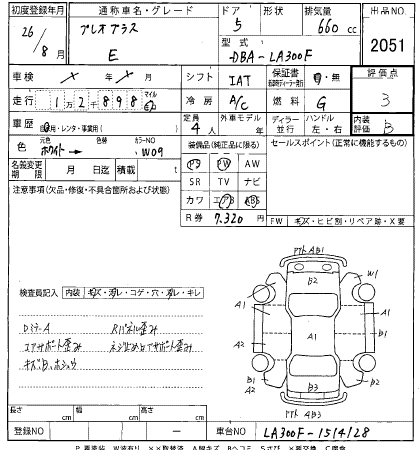 初度登録年月 通称車名・グレード ドア 形状 排気量 出品NO.
26/8月 プレオプラス E 5 660 cc 2051
型式 DBA-LA300F
車検 × 年 × 月 シフト IAT 保証書 有・無 評価点
走行 1万2千898 マイル km 冷房 A/C 燃料 G 3
車歴 自家用・レンタ・事業用( ) 定員 4人 外車モデル 年 ディーラー 並行 ハンドル 左・右 内装評価 B
色 元色 ホワイト → 色替 カラーNO W09 装備品(純正品に限る) セールスポイント(正常に機能するもの)
名義変更期限 月 日迄 積載 t PS PW AW
注意事項(欠品・修復・不具合箇所および状態) SR TV ナビ
カワ エアB ABS
R券 7,320円 FW キズ・ヒビ割・リペア跡・X要
検査員記入 内装 キズ・汚レ・コゲ・穴・濡レ・キレ
Dミラー A Rパネル歪み
コアサポート歪み ネジ止めロアサポート歪み
キズ、B、ホシュウ
PTト AB1
B2 W1
A1 A1
A1
A2 A2
B1 A2 B1
B3
PTト AB3
長さ cm 幅 cm 高さ cm
登録NO ー 車台NO LA300F-1514128
P要塗装 W波有り ××取替済 A線キズ Bヘコミ Sサビ ×要交換 C腐食